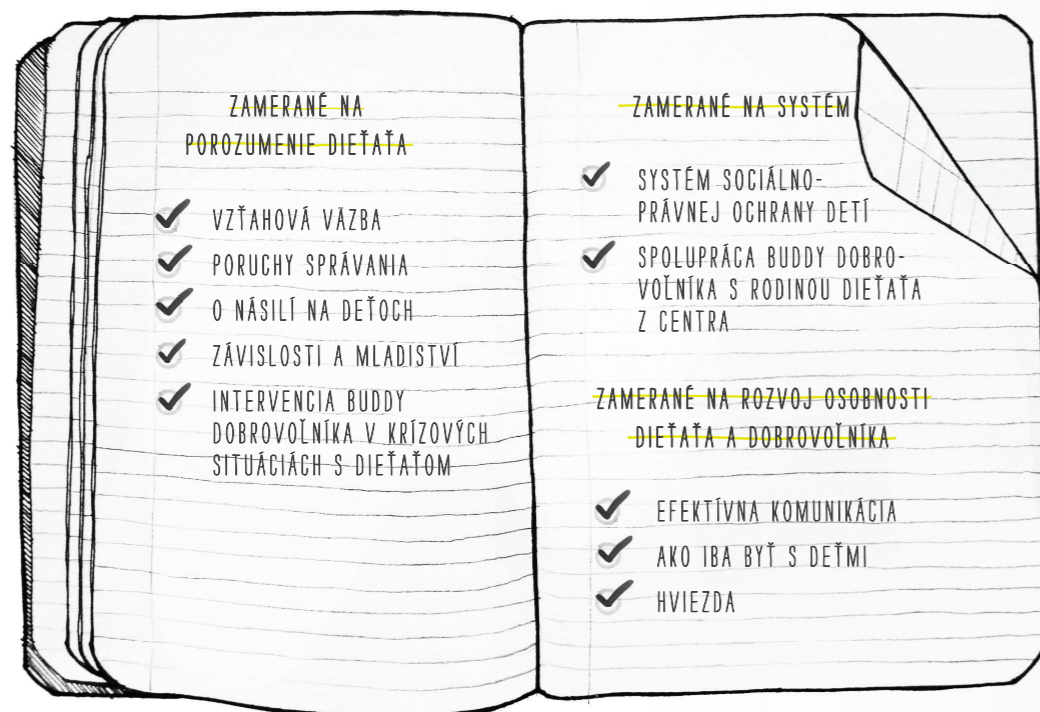 ZAMERANÉ NA
POROZUMENIE DIEŤAŤA
VZŤAHOVÁ VÄZBA
PORUCHY SPRÁVANIA
O NÁSILÍ NA DEŤOCH
ZÁVISLOSTI A MLADISTVÍ
INTERVENCIA BUDDY
DOBROVOĽNÍKA V KRÍZOVÝCH
SITUÁCIÁCH S DIEŤAŤOM
ZAMERANÉ NA SYSTÉM
SYSTÉM SOCIÁLNO-
PRÁVNEJ OCHRANY DETÍ
SPOLUPRÁCA BUDDY DOBRO-
VOĽNÍKA S RODINOU DIEŤAŤA
Z CENTRA
ZAMERANÉ NA ROZVOJ OSOBNOSTI
DIEŤAŤA A DOBROVOĽNÍKA
EFEKTÍVNA KOMUNIKÁCIA
AKO IBA BYŤ S DEŤMI
HVIEZDA